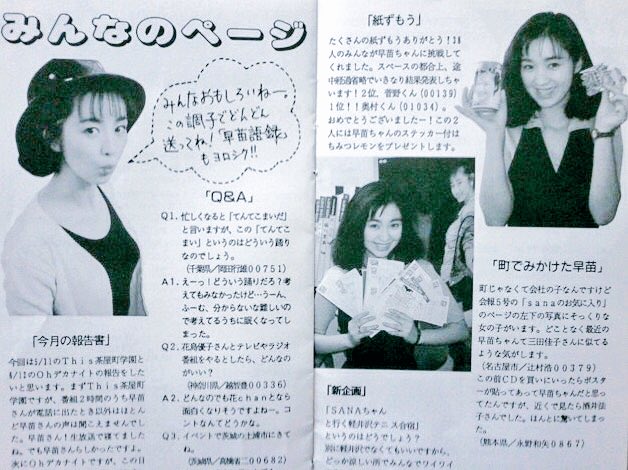 みんなのページ
みんなおもしろいねー。
この調子でどんどん
送ってね!「早苗語録」
もヨロシク!!
「今月の報告書」
今回は5/11のThis茶屋町学園と
6/11のOhデカナイトの報告をした
いと思います。まずThis茶屋町
学園ですが、番組2時間のうち早苗
さんが電話に出たとき以外はほとん
ど早苗さんの声は聞こえませんでし
た。早苗さん!生放送で寝てました
ね。でも早苗さんらしかったですよ。
次にOhデカナイトですが、この日
「Q&A」
Q1.忙しくなると「てんてこまいだ」
と言いますが、この「てんてこ
まい」というのはどういう踊り
なのでしょう。
(千葉県/岡田行雄00751)
A1.えーっ!どういう踊りだろ?考
えてもみなかったけど…うーん、
ふーむ、分からないな難しいの
で考えてるうちに眠くなってし
まった。
Q2.花島優子さんとテレビやラジオ
番組をやるとしたら、どんなの
がいい?
(神奈川県/越智豊00336)
A2.どんなのでも花chanとなら
面白くなりそうですよねー。コ
ントなんてどうかな。
Q3.イベントで茨城の土浦市にきて
ね。
(茨城県/高橋省二00682)
「紙ずもう」
たくさんの紙ずもうありがとう!18
人のみんなが早苗ちゃんに挑戦して
くれました。スペースの都合上、途
中経過省略でいきなり結果発表しちゃ
います!2位、菅野くん(00139)
1位!奥村くん(01034)。
おめでとうございましたー!この2
人には早苗ちゃんのステッカー付は
ちみつレモンをプレゼントします。
「新企画」
「SANAちゃん
と行く軽井沢テニス合宿」
というのはどうでしょう?
別に軽井沢でなくてもいいですから、
どっか涼しい所でみんなでワイワイ
「町でみかけた早苗」
町じゃなくて会社の子なんですけど
会報5号の「sanaのお気に入り」
のページの左下の写真にそっくりな
女の子がいます。どことなく最近の
早苗ちゃんて三田佳子さんに似てる
ような気がします。
(名古屋市/辻村浩00379)
この前CDを買いにいったらポスター
が貼ってあって早苗ちゃんだと思っ
てたんですが、近くで見たら酒井法
子さんでした。ほんとに驚いてしまっ
た。
(熊本県/永野和矢0867)